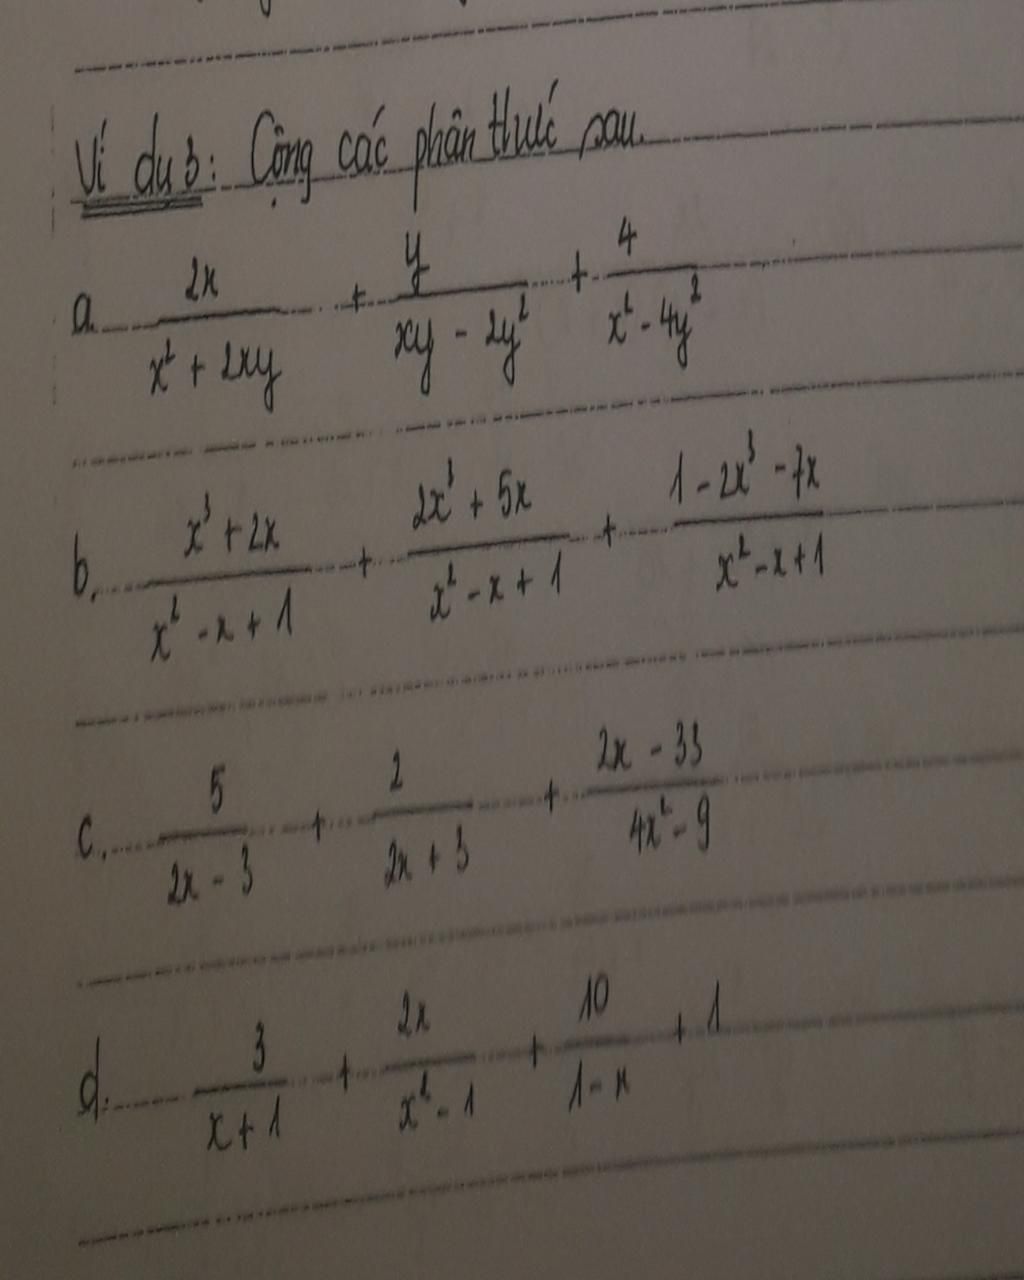 Ví dụ 3: Cộng các phân thức sau.
a. 2x / (x² + 2xy) + y / (xy - 2y²) + 4 / (x² - 4y²)
b. (x³ + 2x) / (x² - x + 1) + (2x³ + 5x) / (x² - x + 1) + (1 - 2x³ - 7x) / (x² - x + 1)
c. 5 / (2x - 3) + 2 / (2x + 3) + (2x - 33) / (4x² - 9)
d. 3 / (x + 1) + 2x / (x² - 1) + 10 / (1 - x) + 1